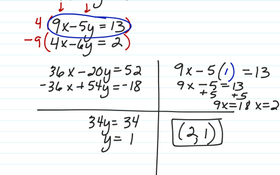 4 (9x - 5y = 13)
-9 (4x - 6y = 2)
36x - 20y = 52
-36x + 54y = -18
34y = 34
y = 1
9x - 5(1) = 13
9x - 5 = 13
+5 +5
9x = 18 x = 2
(2, 1)